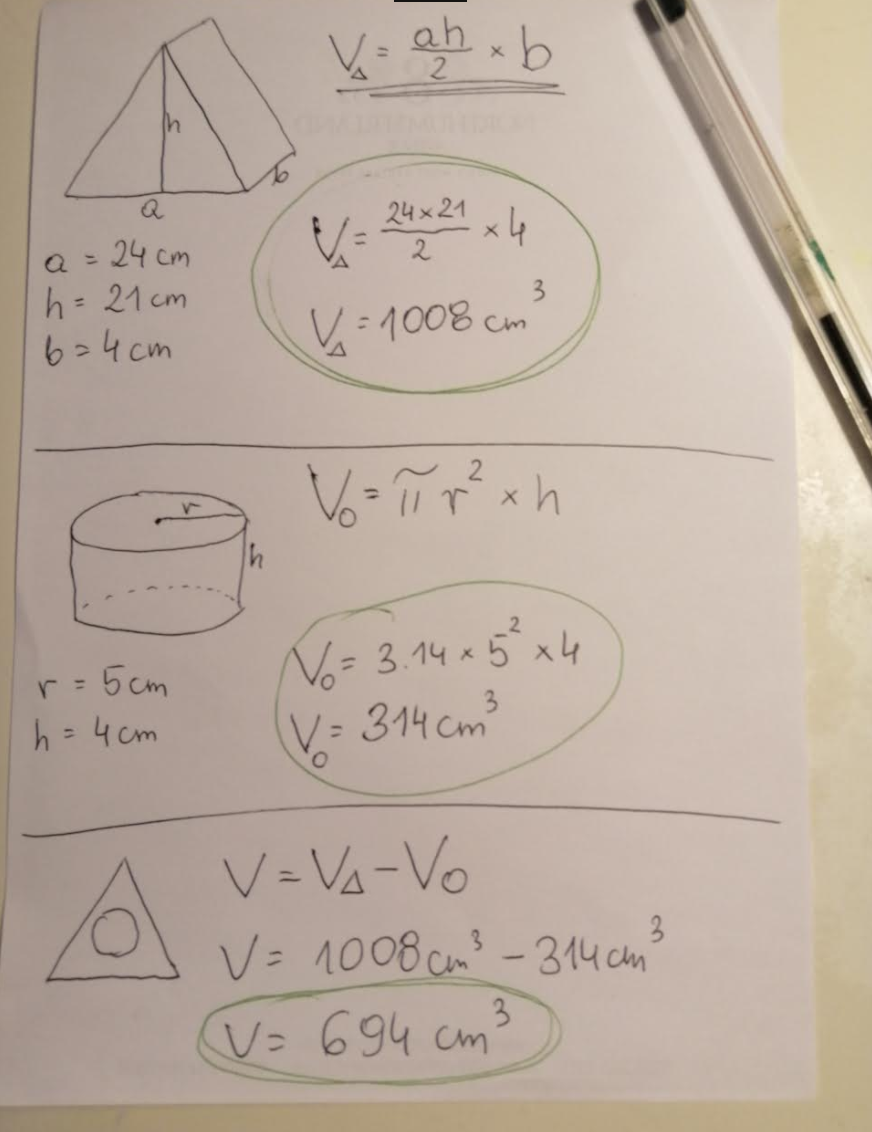 V△ = ah/2 × b
h
b
a
a = 24 cm
h = 21 cm
b = 4 cm
V△ = 24×21/2 × 4
V△ = 1008 cm³
V○ = π r² × h
r
h
r = 5 cm
h = 4 cm
V○ = 3.14 × 5² × 4
V○ = 314 cm³
V = V△ - V○
V = 1008 cm³ - 314 cm³
V = 694 cm³